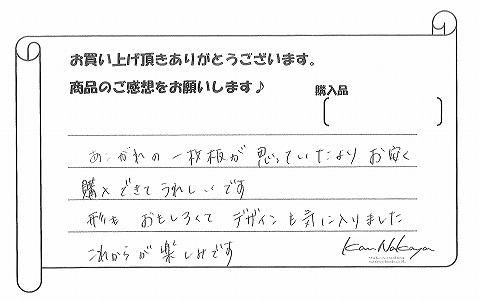 お買い上げ頂きありがとうございます。
商品のご感想をお願いします♪
購入品
あこがれの一枚板が思っていたよりお安く
購入できてうれしいです
形も おもしろくて デザインも気に入りました
これからが楽しみです
Kan Nakaya